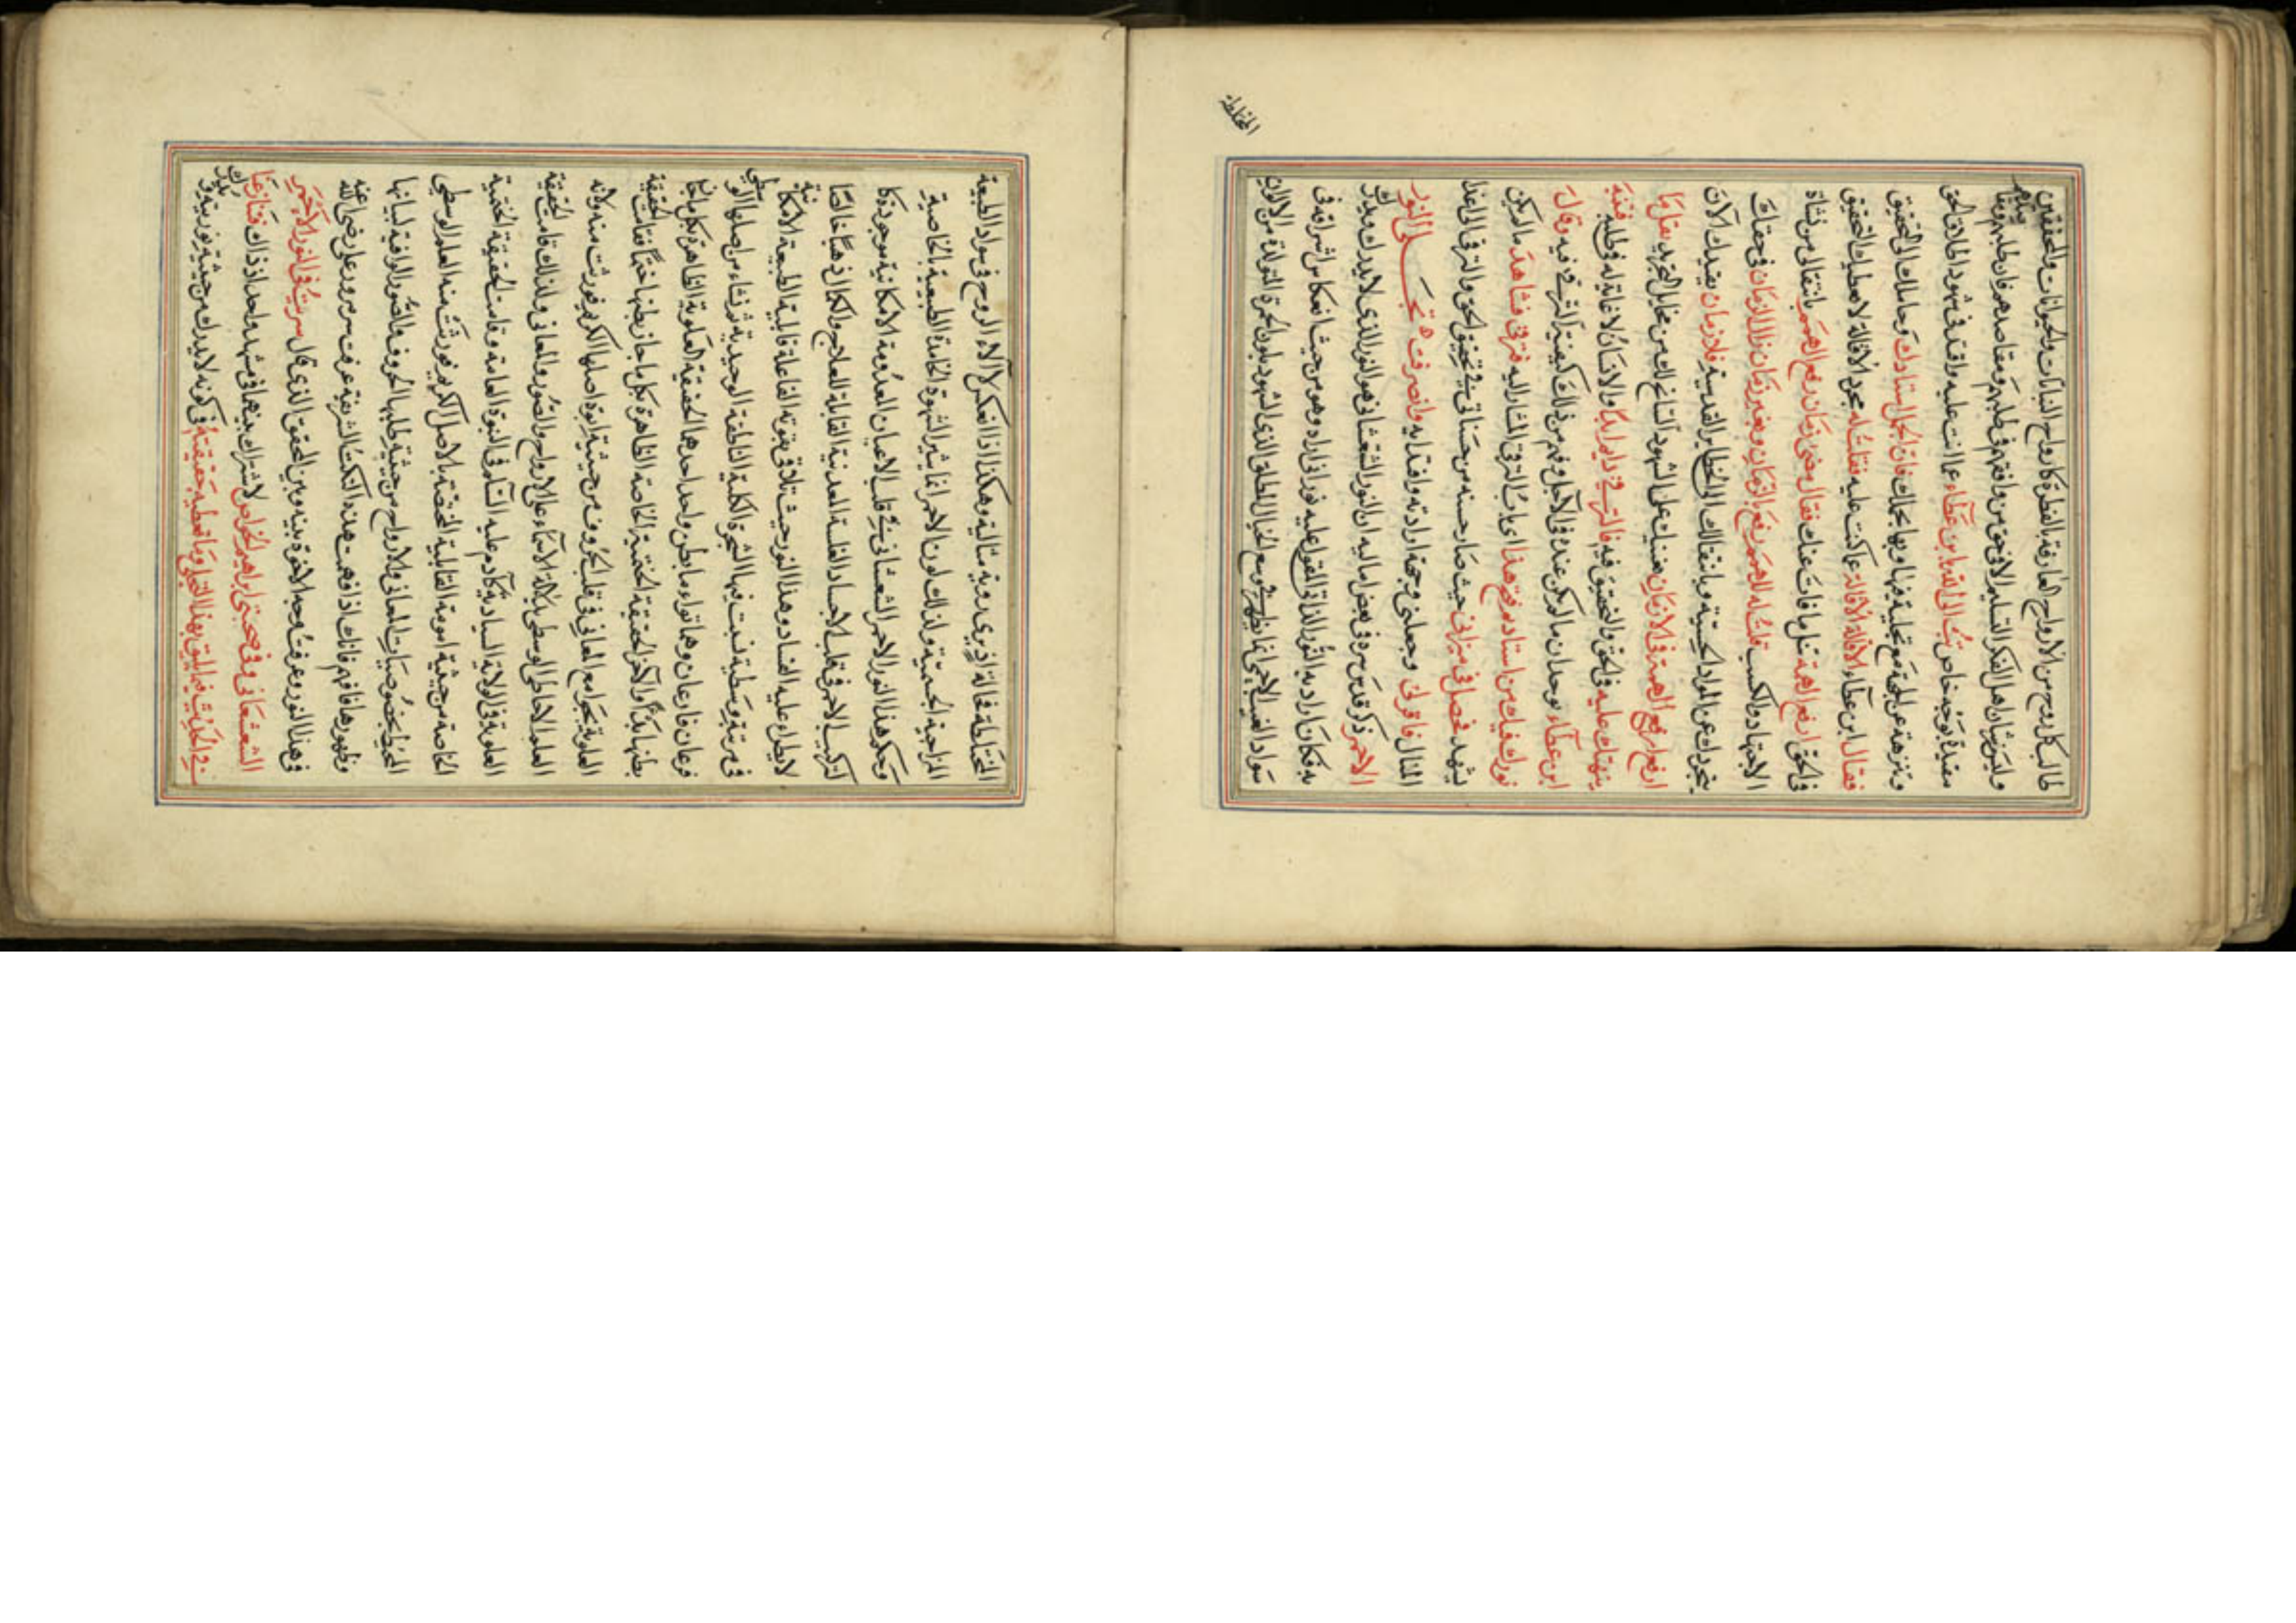 طالب كل روح من الارواح العارفة الفطرة كارواح النباتات والحيوانات والمحققين
وليس من شان اهل الفكر التسليم الا في حق من وافقهم في طلبهم ومقاصدهم فان طلبهم ومقاصدهم
مقيدة بوجه خاص تب الى الله يا ابن عطاء عما انت عليه واقتد في شهود اطلاق الحق
وتنزهه عن الجهة مع تجليه فيها وبها بجملك فان الجمل استاذك وحاملك الى التحقيق
فقال ابن عطاء الاقالة الاقالة عما كنت عليه فقلت له مجرد الاقالة لا يعطيك التحقيق
في الحق ارفع الهمة تنل ما فات عنك فقال مضى زمان رفع الهمم بانتقالي من نشاة
الاجتهاد والكسب قلت له للهمم رفع بالزمان وبغير زمان زال الزمان في حقك
بتجردك عن المواد الحسية وبانتقالك الى الحظاير القدسية فلا زمان يقيدك الآن
ارفع الهمة في الازمان تنل ما
ينهتك عليه في الحق والتحقيق فيه فالترقي دايم ابدا والانسان لا غاية له في طلبه فتنبه
ابن عطاء بوجدان ما لم يكن عنده في الآجل وفهم من ذلك كيفية الترقي فيه وقال
بورك فيك من استاذ ثم فتح هذا اي باب الترقي المشار اليه فترقى فشاهد ما لم يكن
يشهد فحصل في ميزاني حيث صار حسنه من حسناتي في تحقيق الحق والترقي الى
المنال فاقر لي وجعلني وجهة ارادته واقتدايه وانصرفت تجلي النور
الاحمر ذكر قدس سره في بعض اماليه ان النور الشعشعاني هو النور الذي لا يدرك ويدرك
به فكان اراد به النور الذاتي المقول عليه نور اني اراه وهو من حيث انعكاس اشراقه في
سواد الغيب الاحمى انما يظهر في وسع الخيال المطلق الذي الشهود بلون الحمرة المتولدة من الالوان
المختلطة
المختلطة فحالتئذ يرى رؤية مثالية وهكذا اذا انعكس لألاء الروح في سواد الطبيعة
المزاجية الجسمية ولذلك لون الاحمر انما يثير الشهوة الكامنة الطبيعية الخاصية
وحكم هذا النور الاحمر الشعشعاني في قلب الاعيان المعدومة الامكانية موجودة كا
لكبريت الاحمر في قلب الاجساد الظلية المعدنية القابلة للعلاج والكمال ذهبا خالصا
لا يطرا عليه الفساد وهذا النور حيث تلاقى بقوته الفاعلة قابلية الطبيعة الامكانية
في مرتبة وسطية نبتت فيها الشجرة الكلية الناطقة الوحيدية ثم نشاء من اصلها الوسطي
فرعان فارعان وهما توأم بطن واحد احدهما الحقيقة العلوية الظاهرة بكل ما جاز
بطنها بدأ والآخر الحقيقة الختمية الخاصة الظاهرة بكل ما جاز بطنها ختما فنالت الحقيقة
العلوية بجوامع المعاني في قلب الحروف من حيثية ابوة اصلها الكريم فورثت منه ولاية
العلم الاحاطي الوسطي بدلالة الاسماء على الارواح والصور والمعاني ولذلك قامت الحقيقة
العلوية في الولاية السيادية كآدم عليه السلام في النبوة العامة وقامت الحقيقة الختمية
الخاصة من حيثية امومة القابلية المختصة بالاصل الكريم فورثت منه العلم الوسطي
المحيط بخصوصيات المعاني والارواح من حيثية طلبها الحروف والصور الوافية لبيانها
وظهورها فافهم فانك اذا فهمت هذه النكت الشريفة عرفت سر مرور علي رضي الله عنه
في هذا النور وعرفت وجه الاخوة بينه وبين المحقق الذي قال سريت في النور الاحمر
الشعشعاني وفي صحبتي ابراهيم الخواص لاشتراك بينهما في مشهد واحد اذ ذاك فتنازعنا
في الحديث فيما يليق بهذا التجلي وما تعطيه حقيقته في كونه لا يدرك من حيثية نور يته